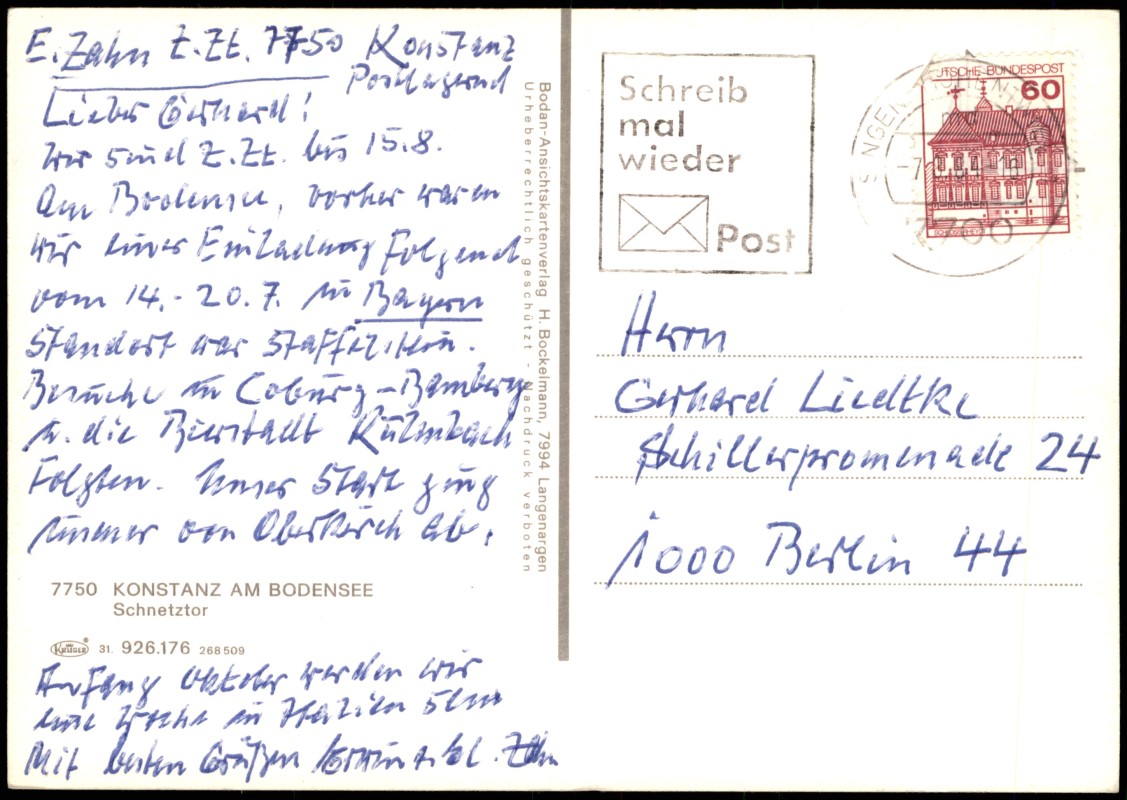 E. Zahn z.Zt. 7750 Konstanz
Postlagernd
Lieber Gerhard!
Wir sind z.Zt. bis 15.8.
am Bodensee, vorher waren
wir einer Einladung folgend
vom 14.-20.7. in Bayern
Standort war Staffelstein.
Besuche in Coburg-Bamberg
u. die Bierstadt Kulmbach
folgten. Unser Start ging
immer von Oberkirch ab.
7750 KONSTANZ AM BODENSEE
Schnetztor
KRÜGER ® 31. 926.176 268509
Anfang Oktober werden wir
eine Woche in Italien sein
Mit besten Grüßen Zahn
Bodan-Ansichtskartenverlag H. Bockelmann, 7994 Langenargen
Urheberrechtlich geschützt - Nachdruck verboten
Schreib
mal
wieder
Post
UTSCHE BUNDESPOST
60
SINGEN
7700
Herrn
Gerhard Liedtke
Schillerpromenade 24
1000 Berlin 44